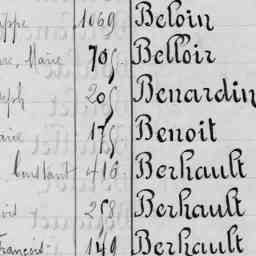 1069 Beloin
Marie 705 Belloir
205 Benardin
175 Benoit
Constant 410 Berhault
253 Berhault
François 149 Berhault